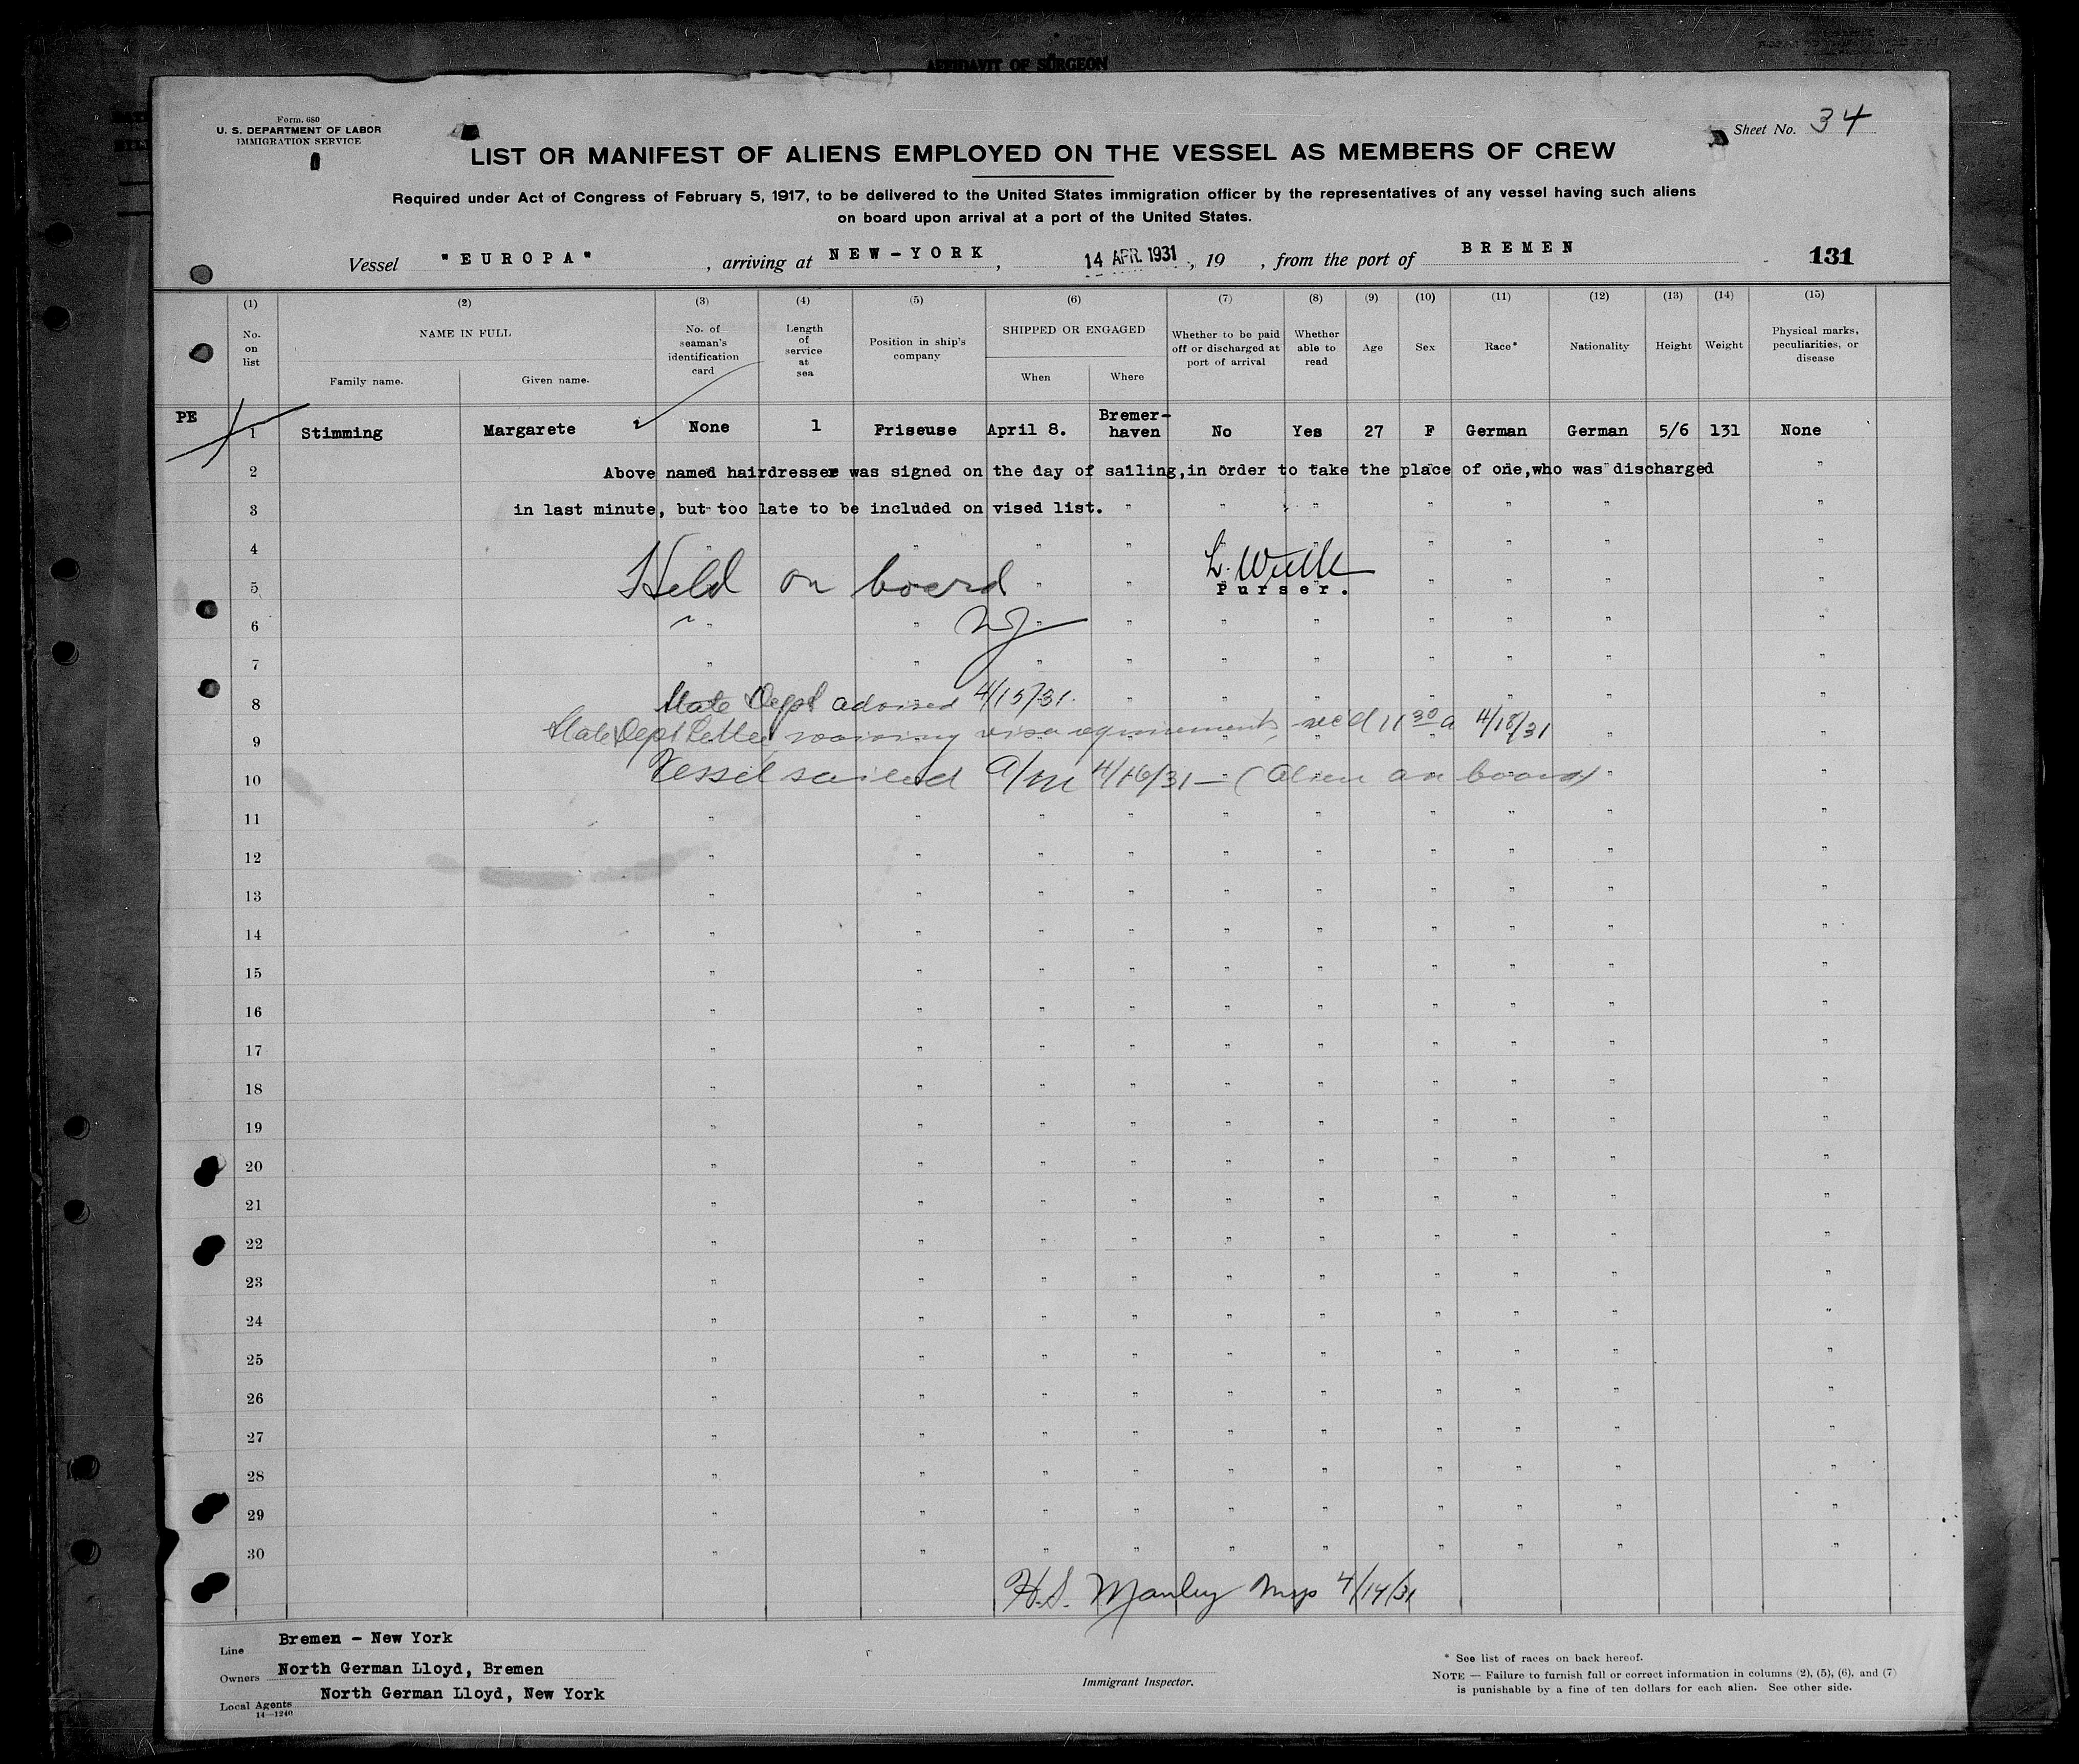 AFFIDAVIT OF SURGEON
Form. 680
U. S. DEPARTMENT OF LABOR
IMMIGRATION SERVICE
Sheet No. 34
LIST OR MANIFEST OF ALIENS EMPLOYED ON THE VESSEL AS MEMBERS OF CREW
Required under Act of Congress of February 5, 1917, to be delivered to the United States immigration officer by the representatives of any vessel having such aliens
on board upon arrival at a port of the United States.
Vessel "EUROPA", arriving at NEW-YORK, 14 APR. 1931, 19 , from the port of BREMEN 131
(1) (2) (3) (4) (5) (6) (7) (8) (9) (10) (11) (12) (13) (14) (15)
No. on list NAME IN FULL Family name. Given name. No. of seaman's identification card Length of service at sea Position in ship's company SHIPPED OR ENGAGED When Where Whether to be paid off or discharged at port of arrival Whether able to read Age Sex Race* Nationality Height Weight Physical marks, peculiarities, or disease
PE 1 Stimming Margarete None 1 Friseuse April 8. Bremer-haven No Yes 27 F German German 5/6 131 None
2 Above named hairdresser was signed on the day of sailing, in order to take the place of one, who was discharged "
3 in last minute, but too late to be included on vised list. " " " " " " "
4 " " " " " " " "
L. Wulle
5 Held on board " " Purser. " " " "
6 " " " " " " " " " "
7 " " " " " " " " " "
8 State Dept advised 4/15/31. " " " " " " "
State Dept Letter waiving visa requirements rec'd 11 30 a 4/18/31
9 " "
10 Vessel sailed a/m 4/16/31 - (Alien on board) " "
11 " " " " " " " " " "
12 " " " " " " " " " "
13 " " " " " " " " " "
14 " " " " " " " " " "
15 " " " " " " " " " "
16 " " " " " " " " " "
17 " " " " " " " " " "
18 " " " " " " " " " "
19 " " " " " " " " " "
20 " " " " " " " " " "
21 " " " " " " " " " "
22 " " " " " " " " " "
23 " " " " " " " " " "
24 " " " " " " " " " "
25 " " " " " " " " " "
26 " " " " " " " " " "
27 " " " " " " " " " "
28 " " " " " " " " " "
29 " " " " " " " " " "
30 " " " " " " " " " "
H.S. Manley Insp 4/14/31
Line Bremen - New York
Owners North German Lloyd, Bremen
Local Agents North German Lloyd, New York
14—1240
Immigrant Inspector.
* See list of races on back hereof.
NOTE — Failure to furnish full or correct information in columns (2), (5), (6), and (7)
is punishable by a fine of ten dollars for each alien. See other side.